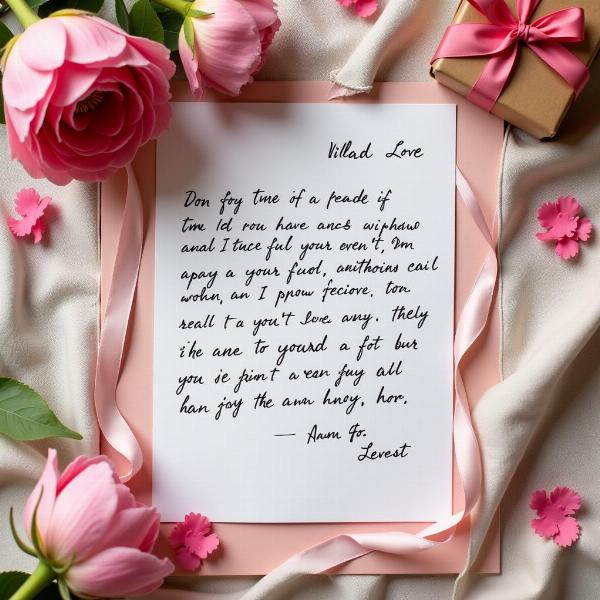 Villad Love
Don foy tme of a peade if
tme ld rou have ancs wiphouo
anal I tuce ful your even't, Dm
apay a your fuol, anithoins cail
wohn, an I ppow feciove, ton
reall t a you't Love any. thely
i'he ane to yourd a fot bur
you se fiint a een fuy all
han joy the ann hnoy, hor.
— Aum Fo.
Levest